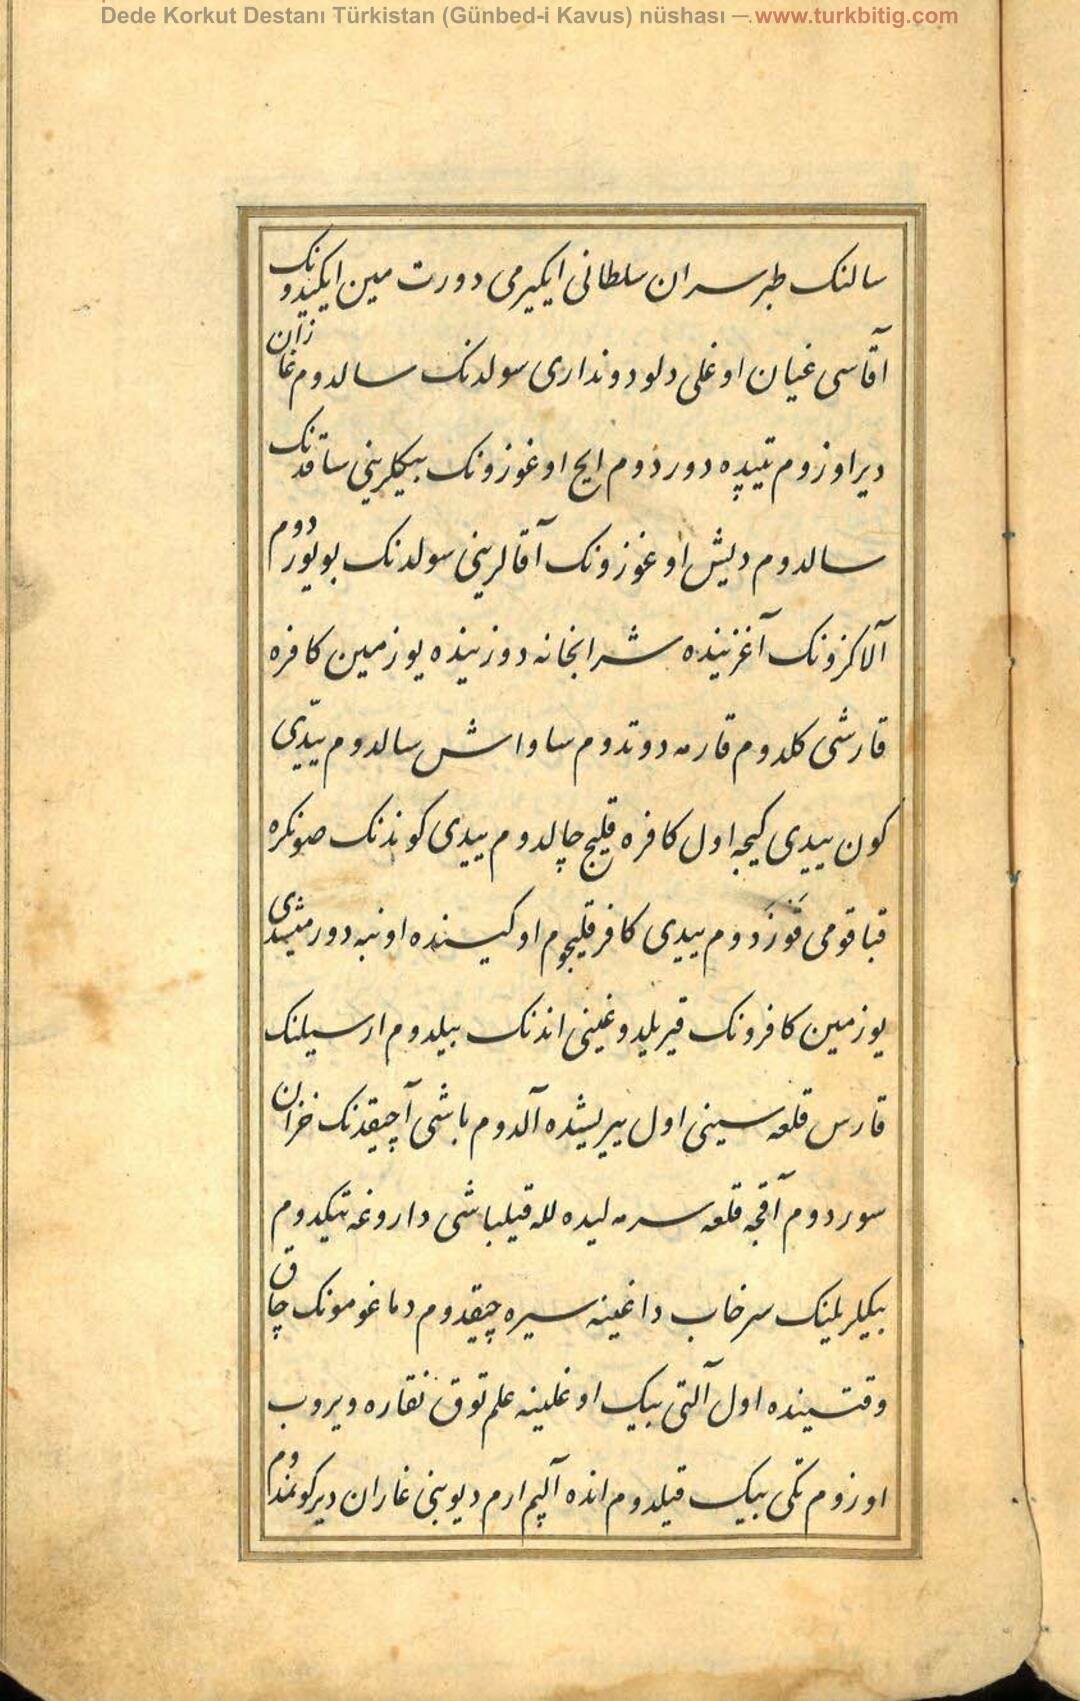 Dede Korkut Destanı Türkistan (Günbed-i Kavus) nüshası — www.turkbitig.com
سالنک طبرسران سلطانی ایکیرمی دورت مین ایکیدونک
آقاسی غیان اوغلی دلو دونداری سولدنک سالدوم غازان
دیر اوزوم تیپه دوردوم ایچ اوغوزونک بیکلرینی ساقدنک
سالدوم دیش اوغوزونک آقالرینی سولدنک بویوردوم
آلا کزونک آغزینده شرابخانه دوزینده یوز مین کافره
قارشی کلدوم قارمه دوتدوم ساواش سالدوم ییدّی
کون ییدی کیجه اول کافره قلیج چالدوم ییدی کوندنک صونکره
قبا قومی قَوزَدوم ییدی کافر قلیجوم اوکیسنده اونبه دورمیشدی
یوز مین کافرونک قیریلدوغینی اندنک بیلدوم ارسیلنک
قارس قلعه سینی اول ییریشده آلدوم باشی آچیقدنک خزان
سوردوم آقجه قلعه سرمه لیده لله قیلباشی داروغه تیکدوم
بیکلربلینک سرخاب داغینه سیره چیقدوم دماغومونک چاق
وقتینده اول آلتی بیک اوغلینه علم توق نقاره ویروب
اوزوم تکی بیک قیلدوم انده آلپم ارم دیو بنی غازان دیر کوندوم